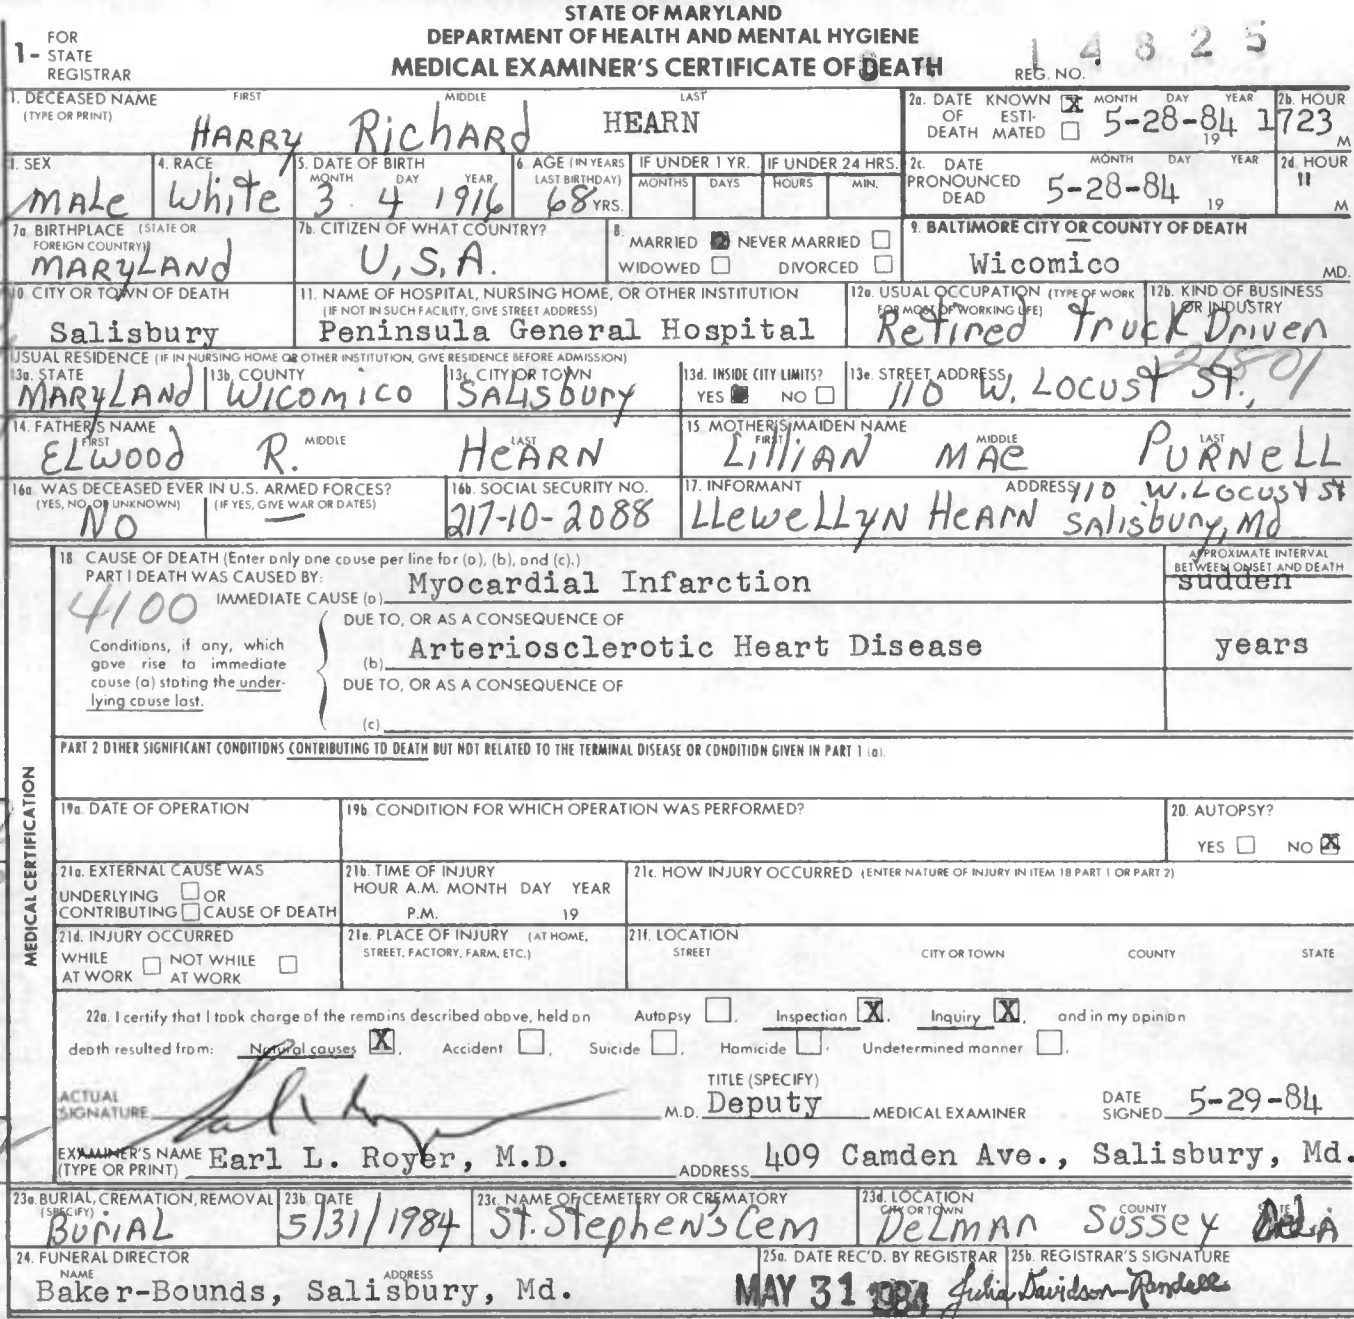 STATE OF MARYLAND
DEPARTMENT OF HEALTH AND MENTAL HYGIENE
MEDICAL EXAMINER'S CERTIFICATE OF DEATH
1- FOR STATE REGISTRAR
REG. NO. 14825
1. DECEASED NAME (TYPE OR PRINT) FIRST MIDDLE LAST
HARRY Richard HEARN
2a. DATE OF DEATH KNOWN X ESTIMATED MONTH DAY YEAR 5-28-84 19
2b. HOUR 1723 M
3. SEX Male
4. RACE White
5. DATE OF BIRTH MONTH DAY YEAR 3 4 1916
6. AGE (IN YEARS LAST BIRTHDAY) 68 YRS.
IF UNDER 1 YR. MONTHS DAYS
IF UNDER 24 HRS. HOURS MIN.
2c. DATE PRONOUNCED DEAD MONTH DAY YEAR 5-28-84 19
2d. HOUR " M
7a. BIRTHPLACE (STATE OR FOREIGN COUNTRY) MARYLAND
7b. CITIZEN OF WHAT COUNTRY? U.S.A.
8. MARRIED NEVER MARRIED WIDOWED DIVORCED
9. BALTIMORE CITY OR COUNTY OF DEATH Wicomico MD.
10. CITY OR TOWN OF DEATH Salisbury
11. NAME OF HOSPITAL, NURSING HOME, OR OTHER INSTITUTION (IF NOT IN SUCH FACILITY, GIVE STREET ADDRESS) Peninsula General Hospital
12a. USUAL OCCUPATION (TYPE OF WORK FOR MOST OF WORKING LIFE) Retired
12b. KIND OF BUSINESS OR INDUSTRY Truck Driver
USUAL RESIDENCE (IF IN NURSING HOME OR OTHER INSTITUTION, GIVE RESIDENCE BEFORE ADMISSION)
13a. STATE MARYLAND
13b. COUNTY WICOMICO
13c. CITY OR TOWN SALISBURY
13d. INSIDE CITY LIMITS? YES NO
13e. STREET ADDRESS 110 W. LOCUST ST., 21801
14. FATHER'S NAME FIRST MIDDLE LAST ELWOOD R. HEARN
15. MOTHER'S MAIDEN NAME FIRST MIDDLE LAST LILLIAN MAE PURNELL
16a. WAS DECEASED EVER IN U.S. ARMED FORCES? (YES, NO, OR UNKNOWN) (IF YES, GIVE WAR OR DATES) NO —
16b. SOCIAL SECURITY NO. 217-10-2088
17. INFORMANT LLEWELLYN HEARN ADDRESS 110 W. LOCUST ST SALISBURY, Md
MEDICAL CERTIFICATION
18 CAUSE OF DEATH (Enter only one cause per line for (a), (b), and (c).)
APPROXIMATE INTERVAL BETWEEN ONSET AND DEATH
PART I DEATH WAS CAUSED BY:
4100
IMMEDIATE CAUSE (a) Myocardial Infarction sudden
DUE TO, OR AS A CONSEQUENCE OF
Conditions, if any, which gave rise to immediate cause (a) stating the underlying cause last.
(b) Arteriosclerotic Heart Disease years
DUE TO, OR AS A CONSEQUENCE OF
(c)
PART 2 OTHER SIGNIFICANT CONDITIONS CONTRIBUTING TO DEATH BUT NOT RELATED TO THE TERMINAL DISEASE OR CONDITION GIVEN IN PART 1 (a).
19a. DATE OF OPERATION
19b CONDITION FOR WHICH OPERATION WAS PERFORMED?
20. AUTOPSY? YES NO X
21a. EXTERNAL CAUSE WAS UNDERLYING OR CONTRIBUTING CAUSE OF DEATH
21b. TIME OF INJURY HOUR A.M. MONTH DAY YEAR P.M. 19
21c. HOW INJURY OCCURRED (ENTER NATURE OF INJURY IN ITEM 18 PART 1 OR PART 2)
21d. INJURY OCCURRED WHILE AT WORK NOT WHILE AT WORK
21e. PLACE OF INJURY (AT HOME, STREET, FACTORY, FARM, ETC.)
21f. LOCATION STREET CITY OR TOWN COUNTY STATE
22a. I certify that I took charge of the remains described above, held an Autopsy, Inspection X, Inquiry X, and in my opinion
death resulted from: Natural causes X, Accident, Suicide, Homicide, Undetermined manner.
ACTUAL SIGNATURE M.D. TITLE (SPECIFY) Deputy MEDICAL EXAMINER DATE SIGNED 5-29-84
EXAMINER'S NAME (TYPE OR PRINT) Earl L. Royer, M.D. ADDRESS 409 Camden Ave., Salisbury, Md.
23a. BURIAL, CREMATION, REMOVAL (SPECIFY) BURIAL
23b. DATE 5/31/1984
23c. NAME OF CEMETERY OR CREMATORY St. Stephen's Cem
23d. LOCATION CITY OR TOWN COUNTY STATE DELMAR SUSSEX DELA
24. FUNERAL DIRECTOR NAME ADDRESS Baker-Bounds, Salisbury, Md.
25a. DATE REC'D. BY REGISTRAR MAY 31 1984
25b. REGISTRAR'S SIGNATURE Julia Davidson-Randall